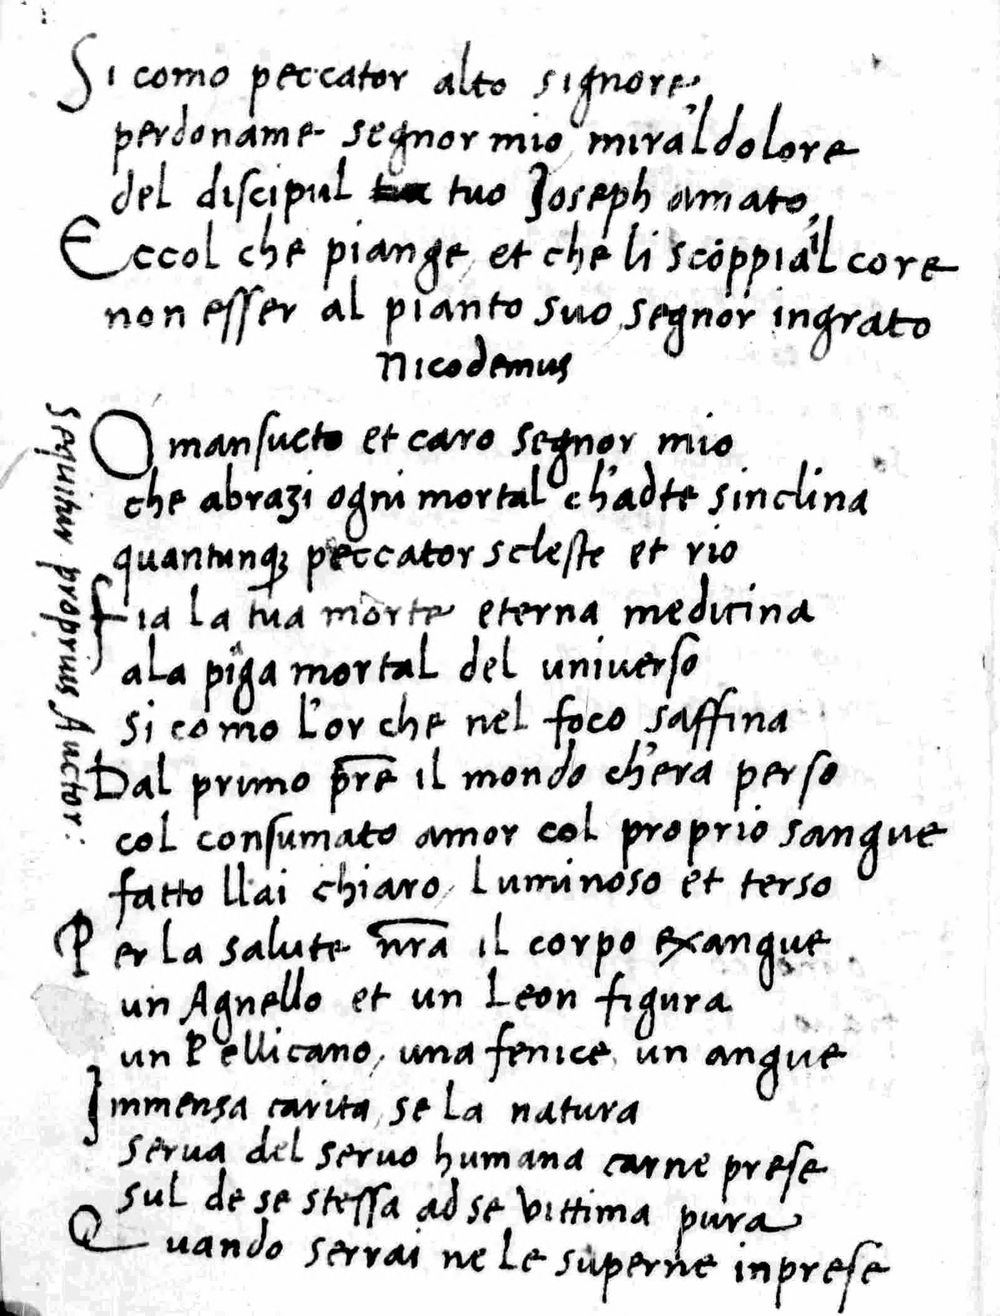 Si como peccator alto signore,
perdoname segnor mio mira'l dolore
del discipul tuo Joseph amato,
Eccol che piange, et che li scoppia il core
non esser al pianto suo, segnor ingrato
Nicodemus
O mansueto et caro segnor mio
che abrazi ogni mortal ch'adte sinclina
quantunqꝫ peccator sceleste et rio
Fia la tua morte eterna medicina
ala piaga mortal del universo
si como l'or che nel foco saffina
Dal primo pre il mondo ch'era perso
col consumato amor col proprio sangue
fatto llai chiaro, luminoso et terso
Per la salute nra il corpo exangue
un Agnello et un Leon figura
un Pellicano, una fenice, un angue
Immensa carita, se la natura
serua del seruo humana carne prese
sul de se stessa ad se vittima pura
Quando serrai ne le superne inprese
Sequitur proprius Auctor.